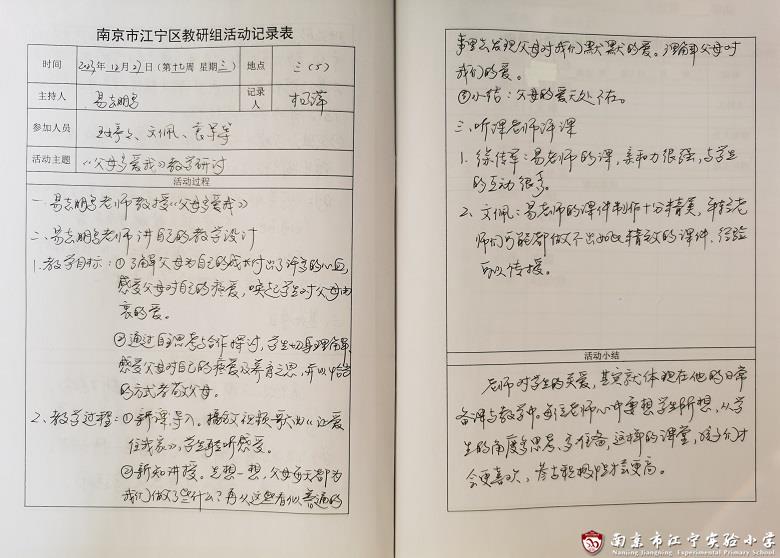 南京市江宁区教研组活动记录表
时间 2023年12月27日(第十七周 星期三) 地点 三(5)
主持人 易志鹏 记录人 杨萍
参加人员 文佩、袁
活动主题 《父母多爱我》教学研讨
活动过程
一、易志鹏老师教授《父母多爱我》
二、易志鹏老师讲自己的教学设计
1、教学目标:①了解父母为自己的成长付出了许多的心血,
感受父母对自己的疼爱,唤起学生对父母由
衷的爱。
②通过自主思考与合作探讨,学生切身理解、
感受父母对自己的疼爱及养育之恩,并以恰当
的方式孝敬父母。
2、教学过程:①新课导入。播放视频歌曲《让爱
住我家》,学生聆听感受。
②新知讲授。先想一想,父母每天都为
我们做了些什么?再从这些看似普通的
事里去发现父母对我们默默的爱。理解父母对
我们的爱。
③小结:父母的爱无处不在。
三、听课老师评课
1、徐传军:易老师的课,亲和力很强,与学生
的互动很多。
2、文佩:易老师的课件制作十分精美,年轻老
师们可能都做不出如此精致的课件、经验
可以传授。
活动小结
老师对学生的关爱,其实就体现在他的日常
备课与教学中。每位老师心中要想学生所想,从学
生的角度多思考、多准备,这样的课堂,孩子们才
会更喜欢,参与积极性才会更高。
南京市江宁实验小学
Nanjing Jiangning Experimental Primary School